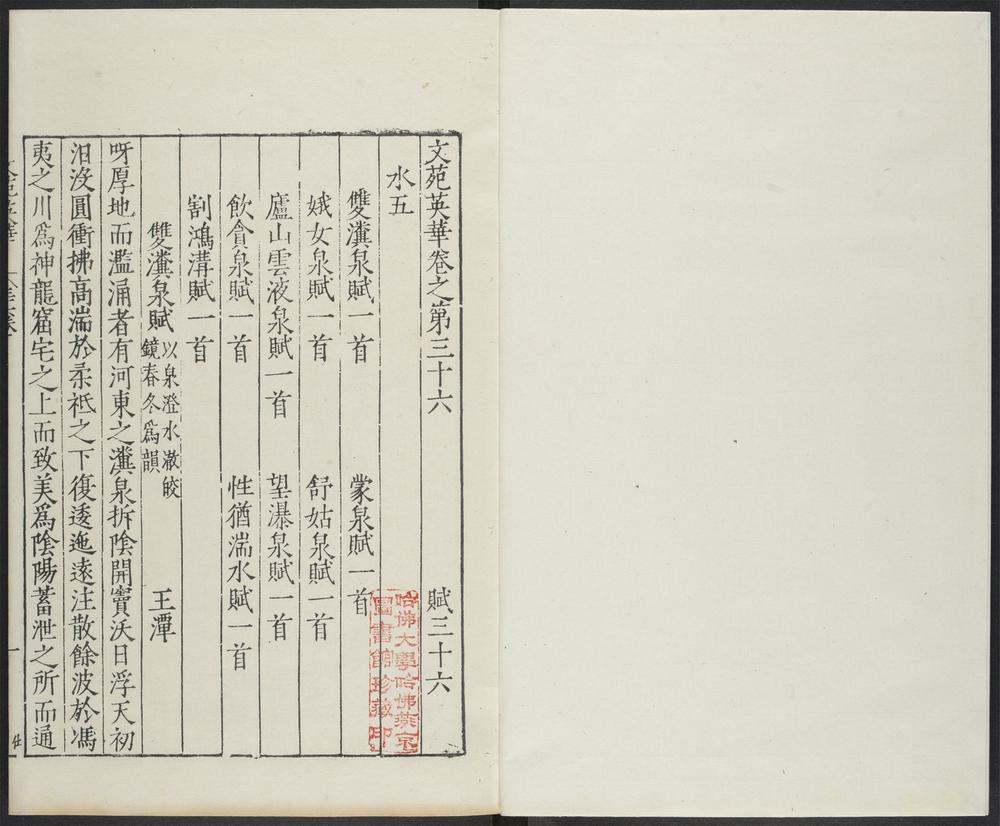 文苑英華卷之第三十六　賦三十六
水五
雙瀵泉賦一首　蒙泉賦一首
娥女泉賦一首　舒姑泉賦一首
廬山雲液泉賦一首　望瀑泉賦一首
飲貪泉賦一首　性猶湍水賦一首
割鴻溝賦一首
雙瀵泉賦　以泉澄水潡皎
鏡春冬爲韻　王潭
呀厚地而濫涌者有河東之瀵泉拆陰開竇沃日浮天初
汨沒圓衝拂高湍於柔祗之下復逶迤遠注散餘波於馮
夷之川爲神龍窟宅之上而致美爲陰陽蓄泄之所而通
哈佛大學哈佛燕京
圖書館珍藏印